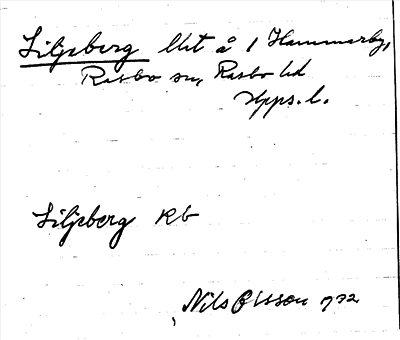 Liljeberg lht å 1 Hammarby,
Rasbo sn, Rasbo hd
Upps. l.
Liljeberg Kb
Nils Olsson 1932